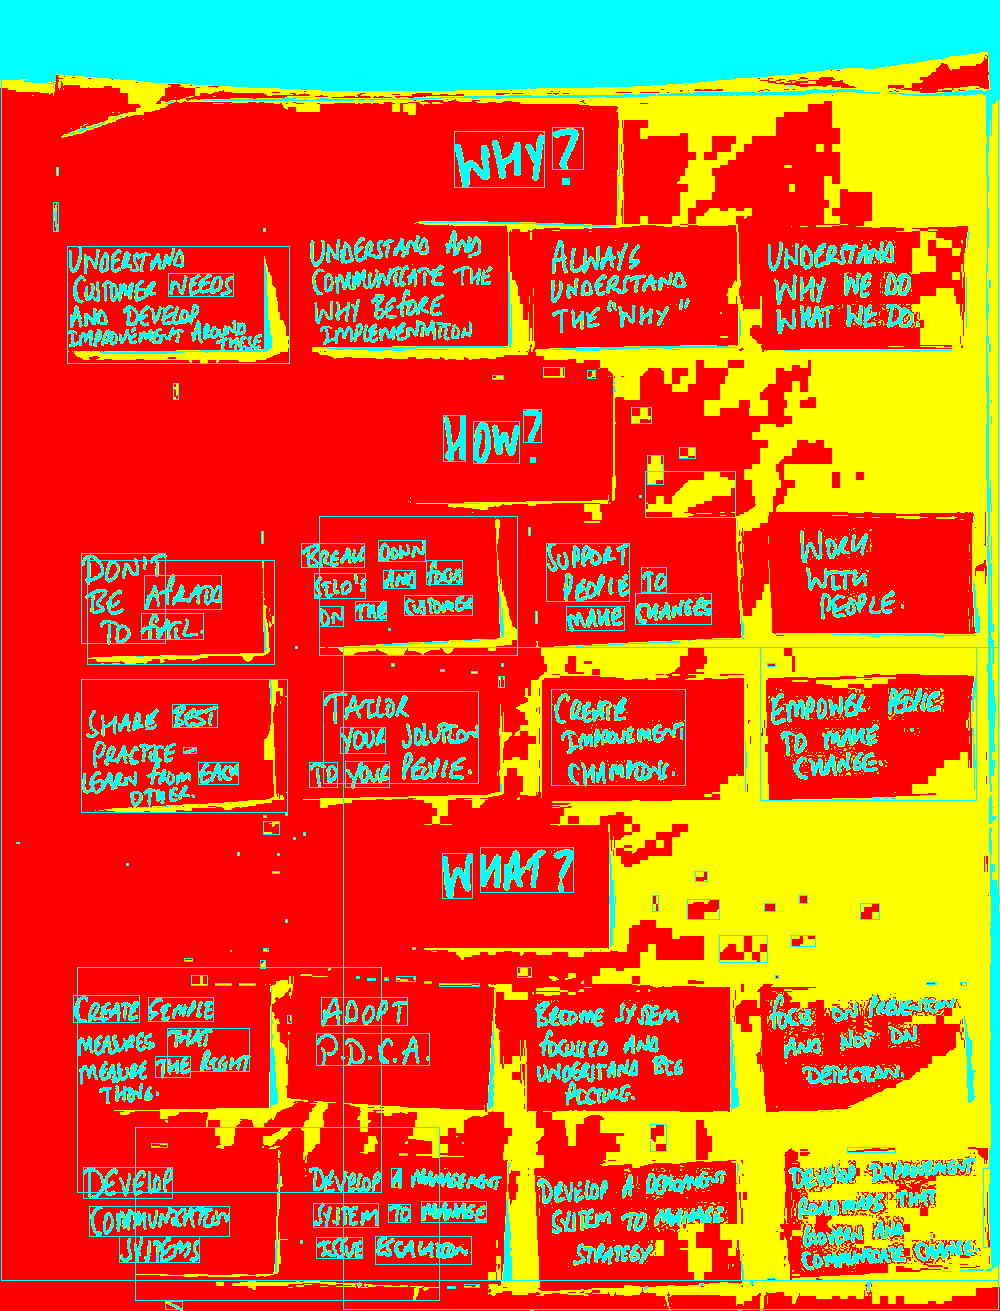 WHY?
UNDERSTAND
CUSTOMER NEEDS
AND DEVELOP
IMPROVEMENT AROUND
THESE
UNDERSTAND AND
COMMUNICATE THE
WHY BEFORE
IMPLEMENTATION
ALWAYS
UNDERSTAND
THE "WHY"
UNDERSTAND
WHY WE DO
WHAT WE DO.
HOW?
DON'T
BE AFRAID
TO FAIL.
BREAK DOWN
SILO'S AND FOCUS
ON THE CUSTOMER
SUPPORT
PEOPLE TO
MAKE CHANGES
WORK
WITH
PEOPLE.
SHARE BEST
PRACTICE -
LEARN FROM EACH
OTHER.
TAILOR
YOUR SOLUTION
TO YOUR PEOPLE.
CREATE
IMPROVEMENT
CHAMPIONS.
EMPOWER PEOPLE
TO MAKE
CHANGE.
WHAT?
CREATE SIMPLE
MEASURES THAT
MEASURE THE RIGHT
THING.
ADOPT
P.D.C.A.
BECOME SYSTEM
FOCUSED AND
UNDERSTAND BIG
PICTURE.
FOCUS ON PREVENTION
AND NOT ON
DETECTION.
DEVELOP
COMMUNICATION
SYSTEMS
DEVELOP A MANAGEMENT
SYSTEM TO MANAGE
ISSUE ESCALATION
DEVELOP A DEPLOYMENT
SYSTEM TO MANAGE
STRATEGY
DEVELOP IMPROVEMENT
ROADMAPS THAT
AND
COMMUNICATE CHANGE.